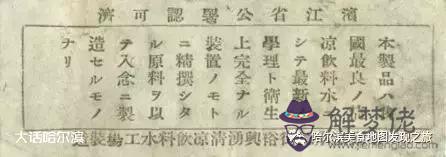 濱江省公署認可濟
本製品ハ
國最良ノ清
涼飲料水
シテ最新
學理ト衛生
上完全ナル
装置ノモト
ニ精撰シタ
ル原料ヲ以
テ入念ニ製
造セルモノ
ナリ
裕興湧清涼飲料水工塲裝造
大话哈尔滨
解梦佬
哈尔滨美食地图发现之旅